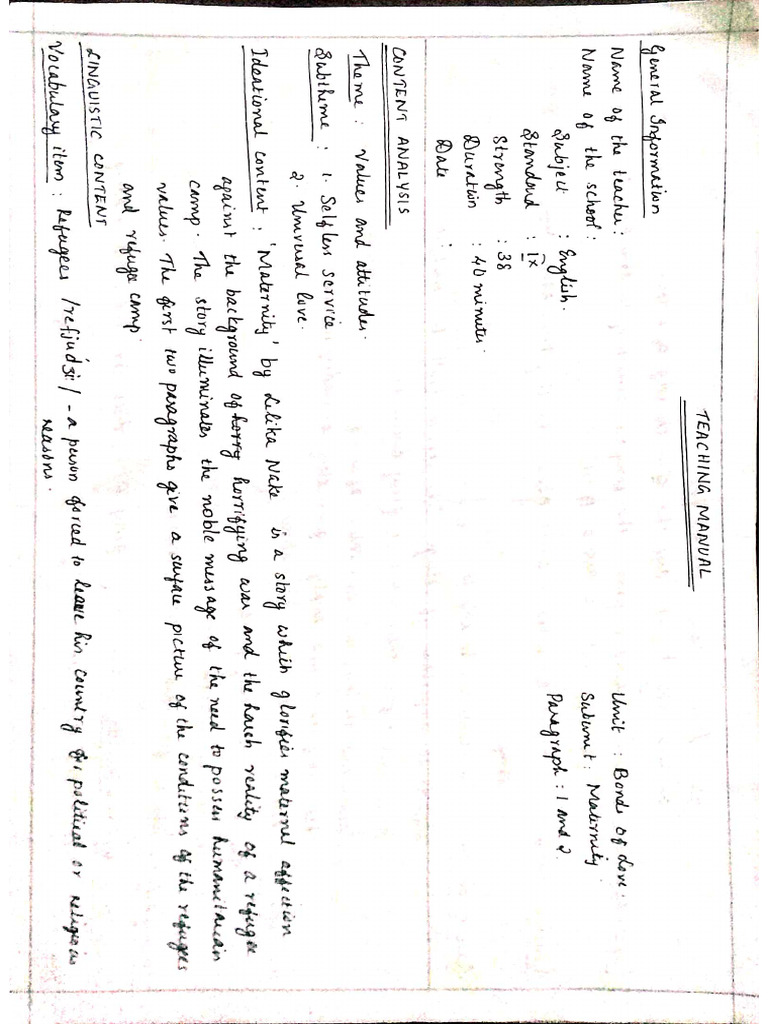 TEACHING MANUAL
General Information
Name of the teacher :
Name of the school :
Subject : English.
Standard : IX
Strength : 38
Duration : 40 minutes.
Date :
Unit : Bonds of Love.
Subunit : Maternity
Paragraph : 1 and 2
CONTENT ANALYSIS
Theme : Values and attitudes.
Subtheme : 1. Selfless service
2. Universal love.
Ideational content : 'Maternity' by Lilika Nake is a story which glorifies maternal affection
against the background of horry horrifying war and the harsh reality of a refugee
camp. The story illuminates the noble message of the need to possess humanitarian
values. The first two paragraphs give a surface picture of the conditions of the refugees
and refugee camp.
LINGUISTIC CONTENT
Vocabulary item : Refugees /refjudʒi:/ - a person forced to leave his country for political or religious
reasons.